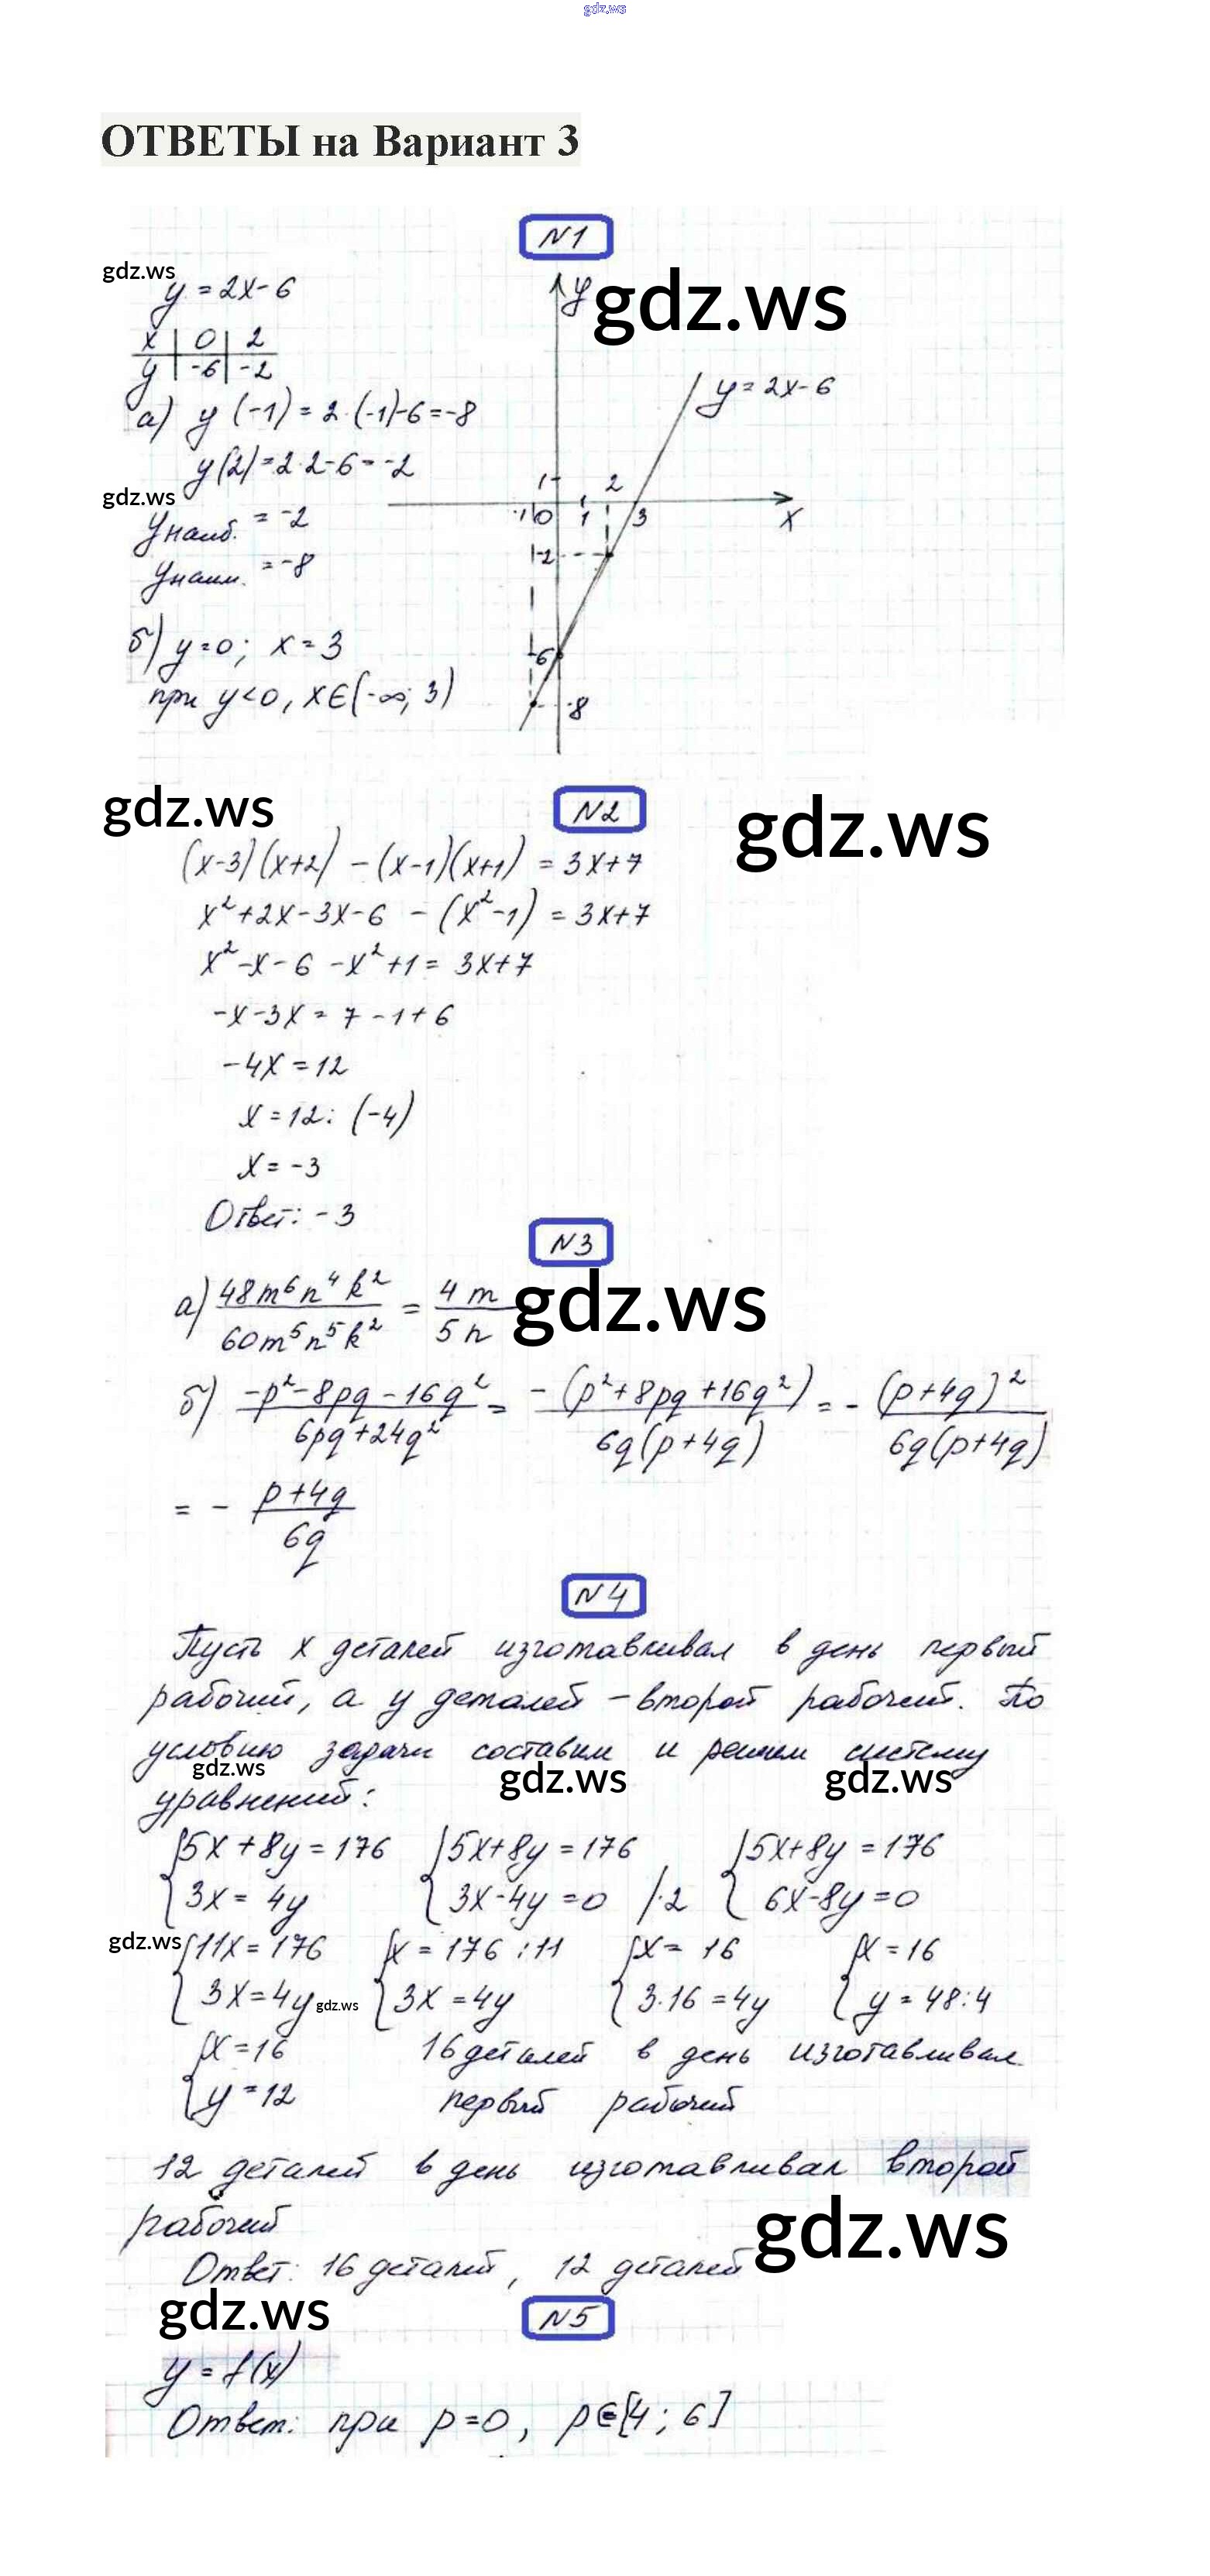 gdz.ws
ОТВЕТЫ на Вариант 3
N1
gdz.ws
y = 2x-6
x | 0 | 2
y | -6 | -2
а) y (-1) = 2·(-1)-6=-8
y(2)=2·2-6=-2
gdz.ws
yнаиб. = -2
yнаим. = -8
б) y=0; x=3
при y<0, x∈(-∞; 3)
y
gdz.ws
y=2x-6
1
2
-1
0
1
3
x
-2
-6
-8
gdz.ws
N2
gdz.ws
(x-3)(x+2) - (x-1)(x+1) = 3x+7
x²+2x-3x-6 - (x²-1) = 3x+7
x²-x-6 -x²+1 = 3x+7
-x-3x = 7-1+6
-4x = 12
x = 12: (-4)
x = -3
Ответ: -3
N3
а) 48m⁶n⁴k² / 60m⁵n⁵k² = 4m / 5n
gdz.ws
б) -p²-8pq-16q² / 6pq+24q² = -(p²+8pq+16q²) / 6q(p+4q) = - (p+4q)² / 6q(p+4q)
= - p+4q / 6q
N4
Пусть x деталей изготавливал в день первый
рабочий, а y деталей - второй рабочий. По
условию задачи составим и решим систему
gdz.ws gdz.ws gdz.ws
уравнений:
{5x+8y=176 {5x+8y=176 {5x+8y=176
{3x=4y {3x-4y=0 /·2 {6x-8y=0
gdz.ws
{11x=176 {x=176:11 {x=16 {x=16
{3x=4y gdz.ws {3x=4y {3·16=4y {y=48:4
{x=16 16 деталей в день изготавливал
{y=12 первый рабочий
12 деталей в день изготавливал второй
рабочий
gdz.ws
Ответ: 16 деталей, 12 деталей
gdz.ws
N5
y = f(x)
Ответ: при p=0, p∈[4; 6]